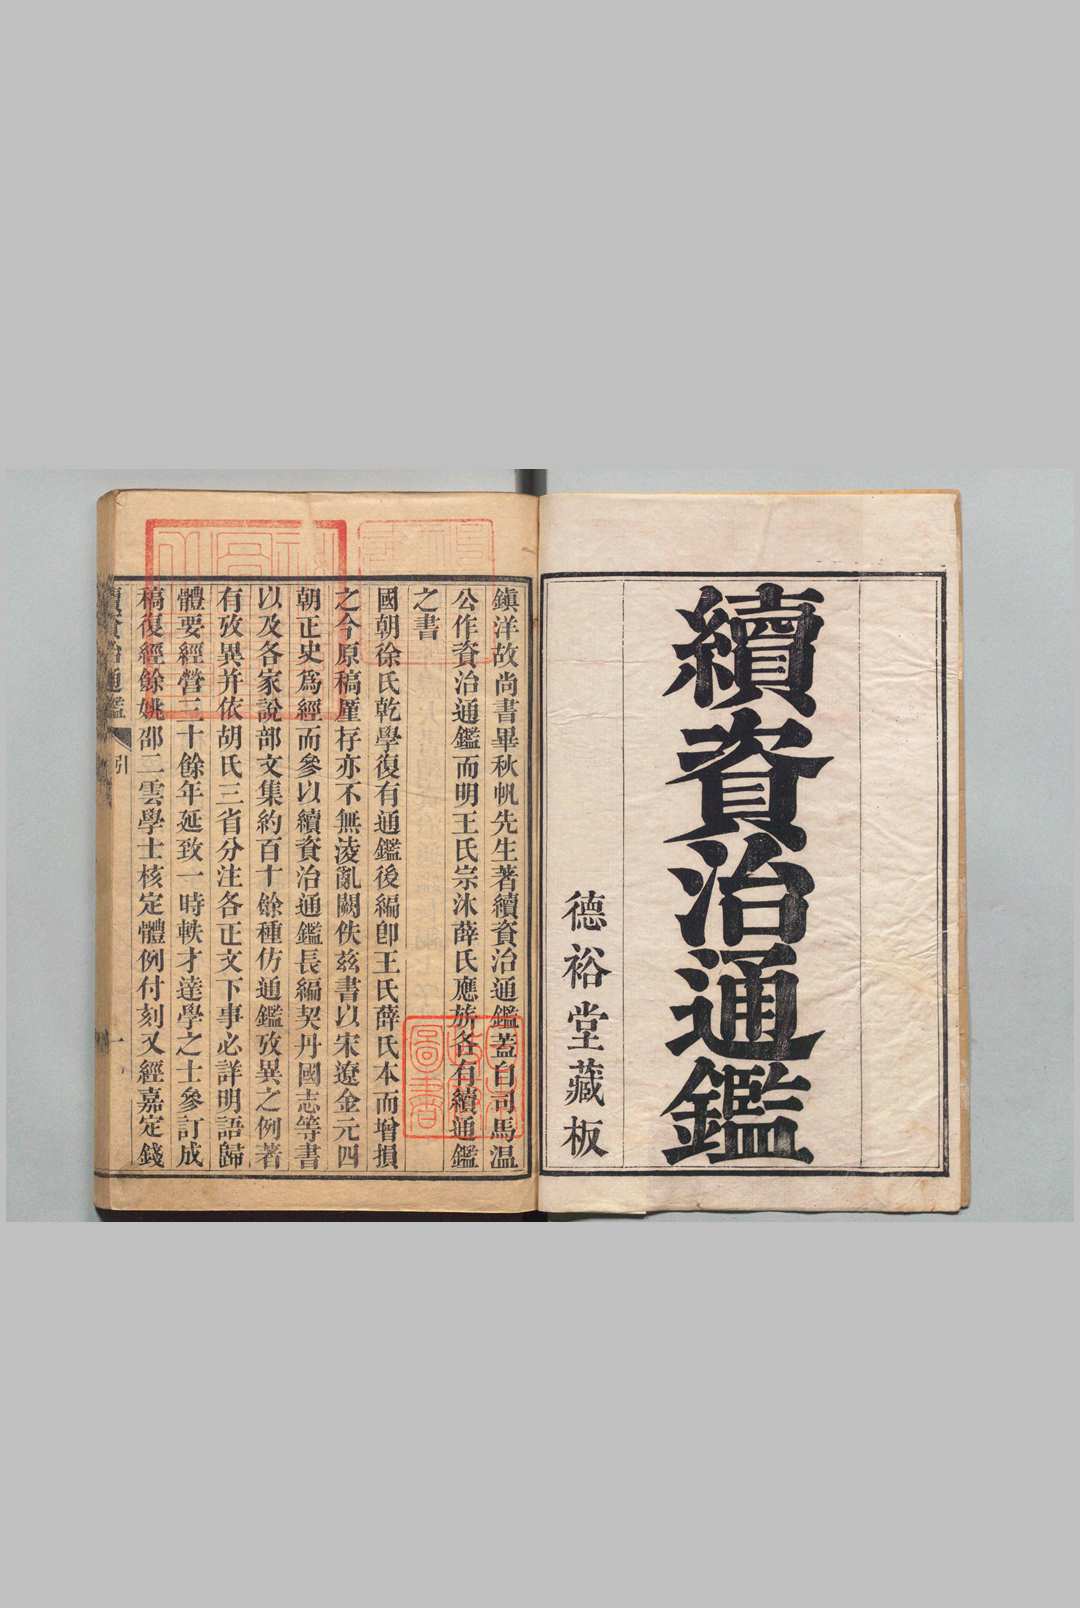 續資治通鑑
德裕堂藏板
鎮洋故尚書畢秋帆先生著續資治通鑑蓋自司馬温
公作資治通鑑而明王氏宗沐薛氏應旂各有續通鑑
之書
國朝徐氏乾學復有通鑑後編卽王氏薛氏本而增損
之今原稿厪存亦不無淩亂闕佚兹書以宋遼金元四
朝正史爲經而參以續資治通鑑長編契丹國志等書
以及各家說部文集約百十餘種仿通鑑攷異之例著
有攷異并依胡氏三省分注各正文下事必詳明語歸
體要經營三十餘年延致一時軼才達學之士參訂成
稿復經餘姚邵二雲學士核定體例付刻又經嘉定錢
續資治通鑑 引 一
圖書